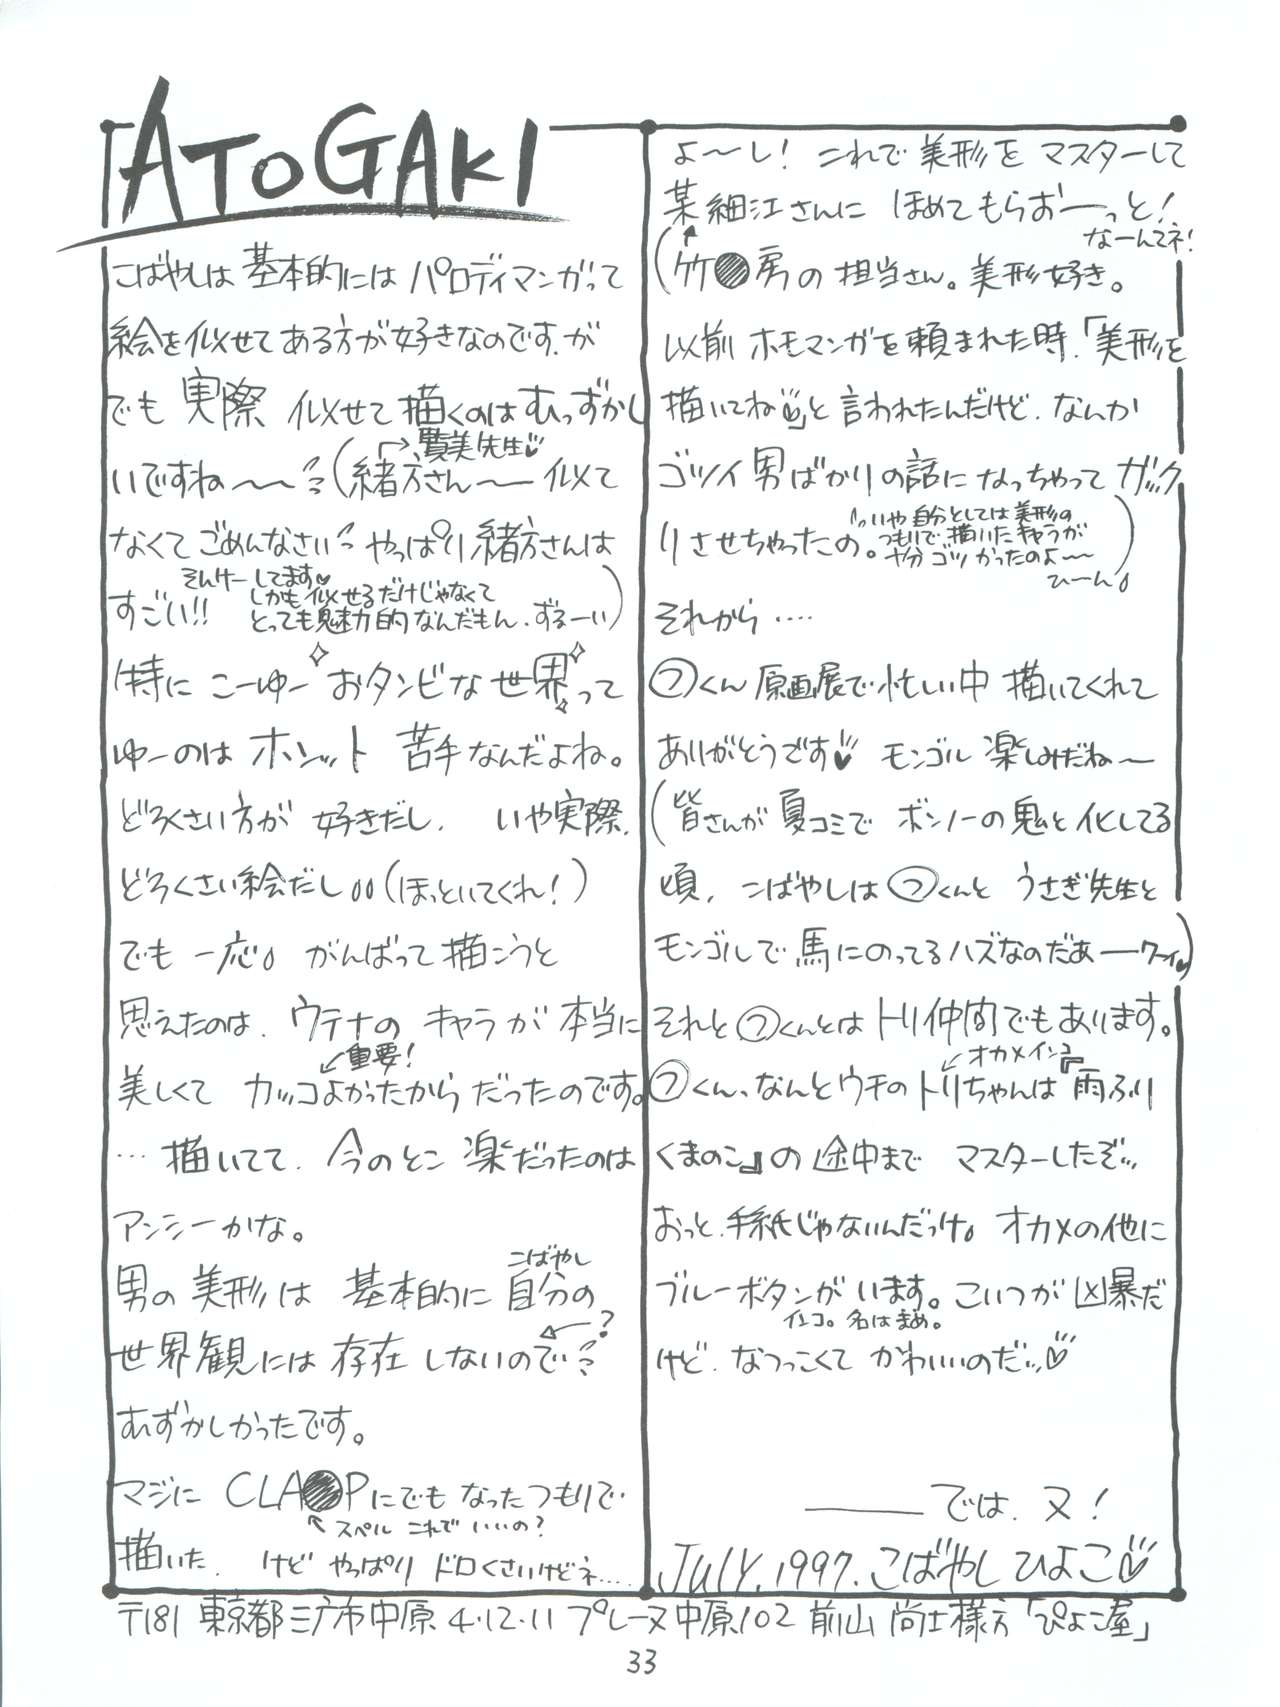 ATOGAKI
こばやしは 基本的には パロディマンガって
絵を似せてある方が好きなのです。が
でも 実際 似せて描くのは むっずかし
いですね〜〜 (緒方さん〜 似て
→賢美先生♡
なくてごめんなさい やっぱり緒方さんは
すごい!!
そんけーしてます♡
しかも似せるだけじゃなくて
とっても魅力的なんだもん、ずるーい)
特に こーゆー おタンビな世界って
ゆーのは ホンット 苦手なんだよね。
どろくさい方が 好きだし、 いや実際、
どろくさい絵だし(ほっといてくれ!)
でも 一応 がんばって描こうと
思えたのは、ウテナの キャラが 本当に
美しくて カッコよかったからだったのです。
重要!
…描いてて、今のとこ 楽だったのは
アンシーかな。
男の美形は 基本的に 自分の
こばやし
世界観には 存在 しないので
?
むずかしかったです。
マジに CLA●Pにでも なったつもりで
スペル これで いいの?
描いた、 けど やっぱり ドロくさいけどネ…‥
よ〜し! これで 美形を マスターして
某細江さんに ほめてもらおーっと!
なーんてネ!
(竹●房の 担当さん。美形好き。
以前 ホモマンガを頼まれた時、「美形を
描いてね♡」と言われたんだけど、なんか
ゴツイ男ばかりの話に なっちゃって ガック
リさせちゃったの。
いや 自分としては美形の
つもりで 描いたキャラが
ゴツかったのよ〜
ひーん)
それから‥‥
つくん 原画展で忙しい中 描いてくれて
ありがとうです♡ モンゴル 楽しみだね〜
(皆さんが 夏コミで ボンノーの鬼と化してる
頃、 こばやしは つくんと うさぎ先生と
モンゴルで 馬にのってるハズなのだあーワーイ♡)
それと つくんとは トリ仲間でもあります。
オカメインコ
つくん、なんとウチの トリちゃんは『雨ふり
くまのこ』の 途中まで マスターしたぞ
おっと、手紙じゃないんだっけ。 オカメの他に
ブルーボタンが います。こいつが 凶暴だ
インコ。名はまめ。
けど、なつっこくて かわいいのだ♡
――では、又!
JULY.1997.こばやし ひよこ♡
〒181 東京都三鷹市中原 4・12・11 プレーヌ中原102 前山 尚士様方「ぴよこ屋」
33